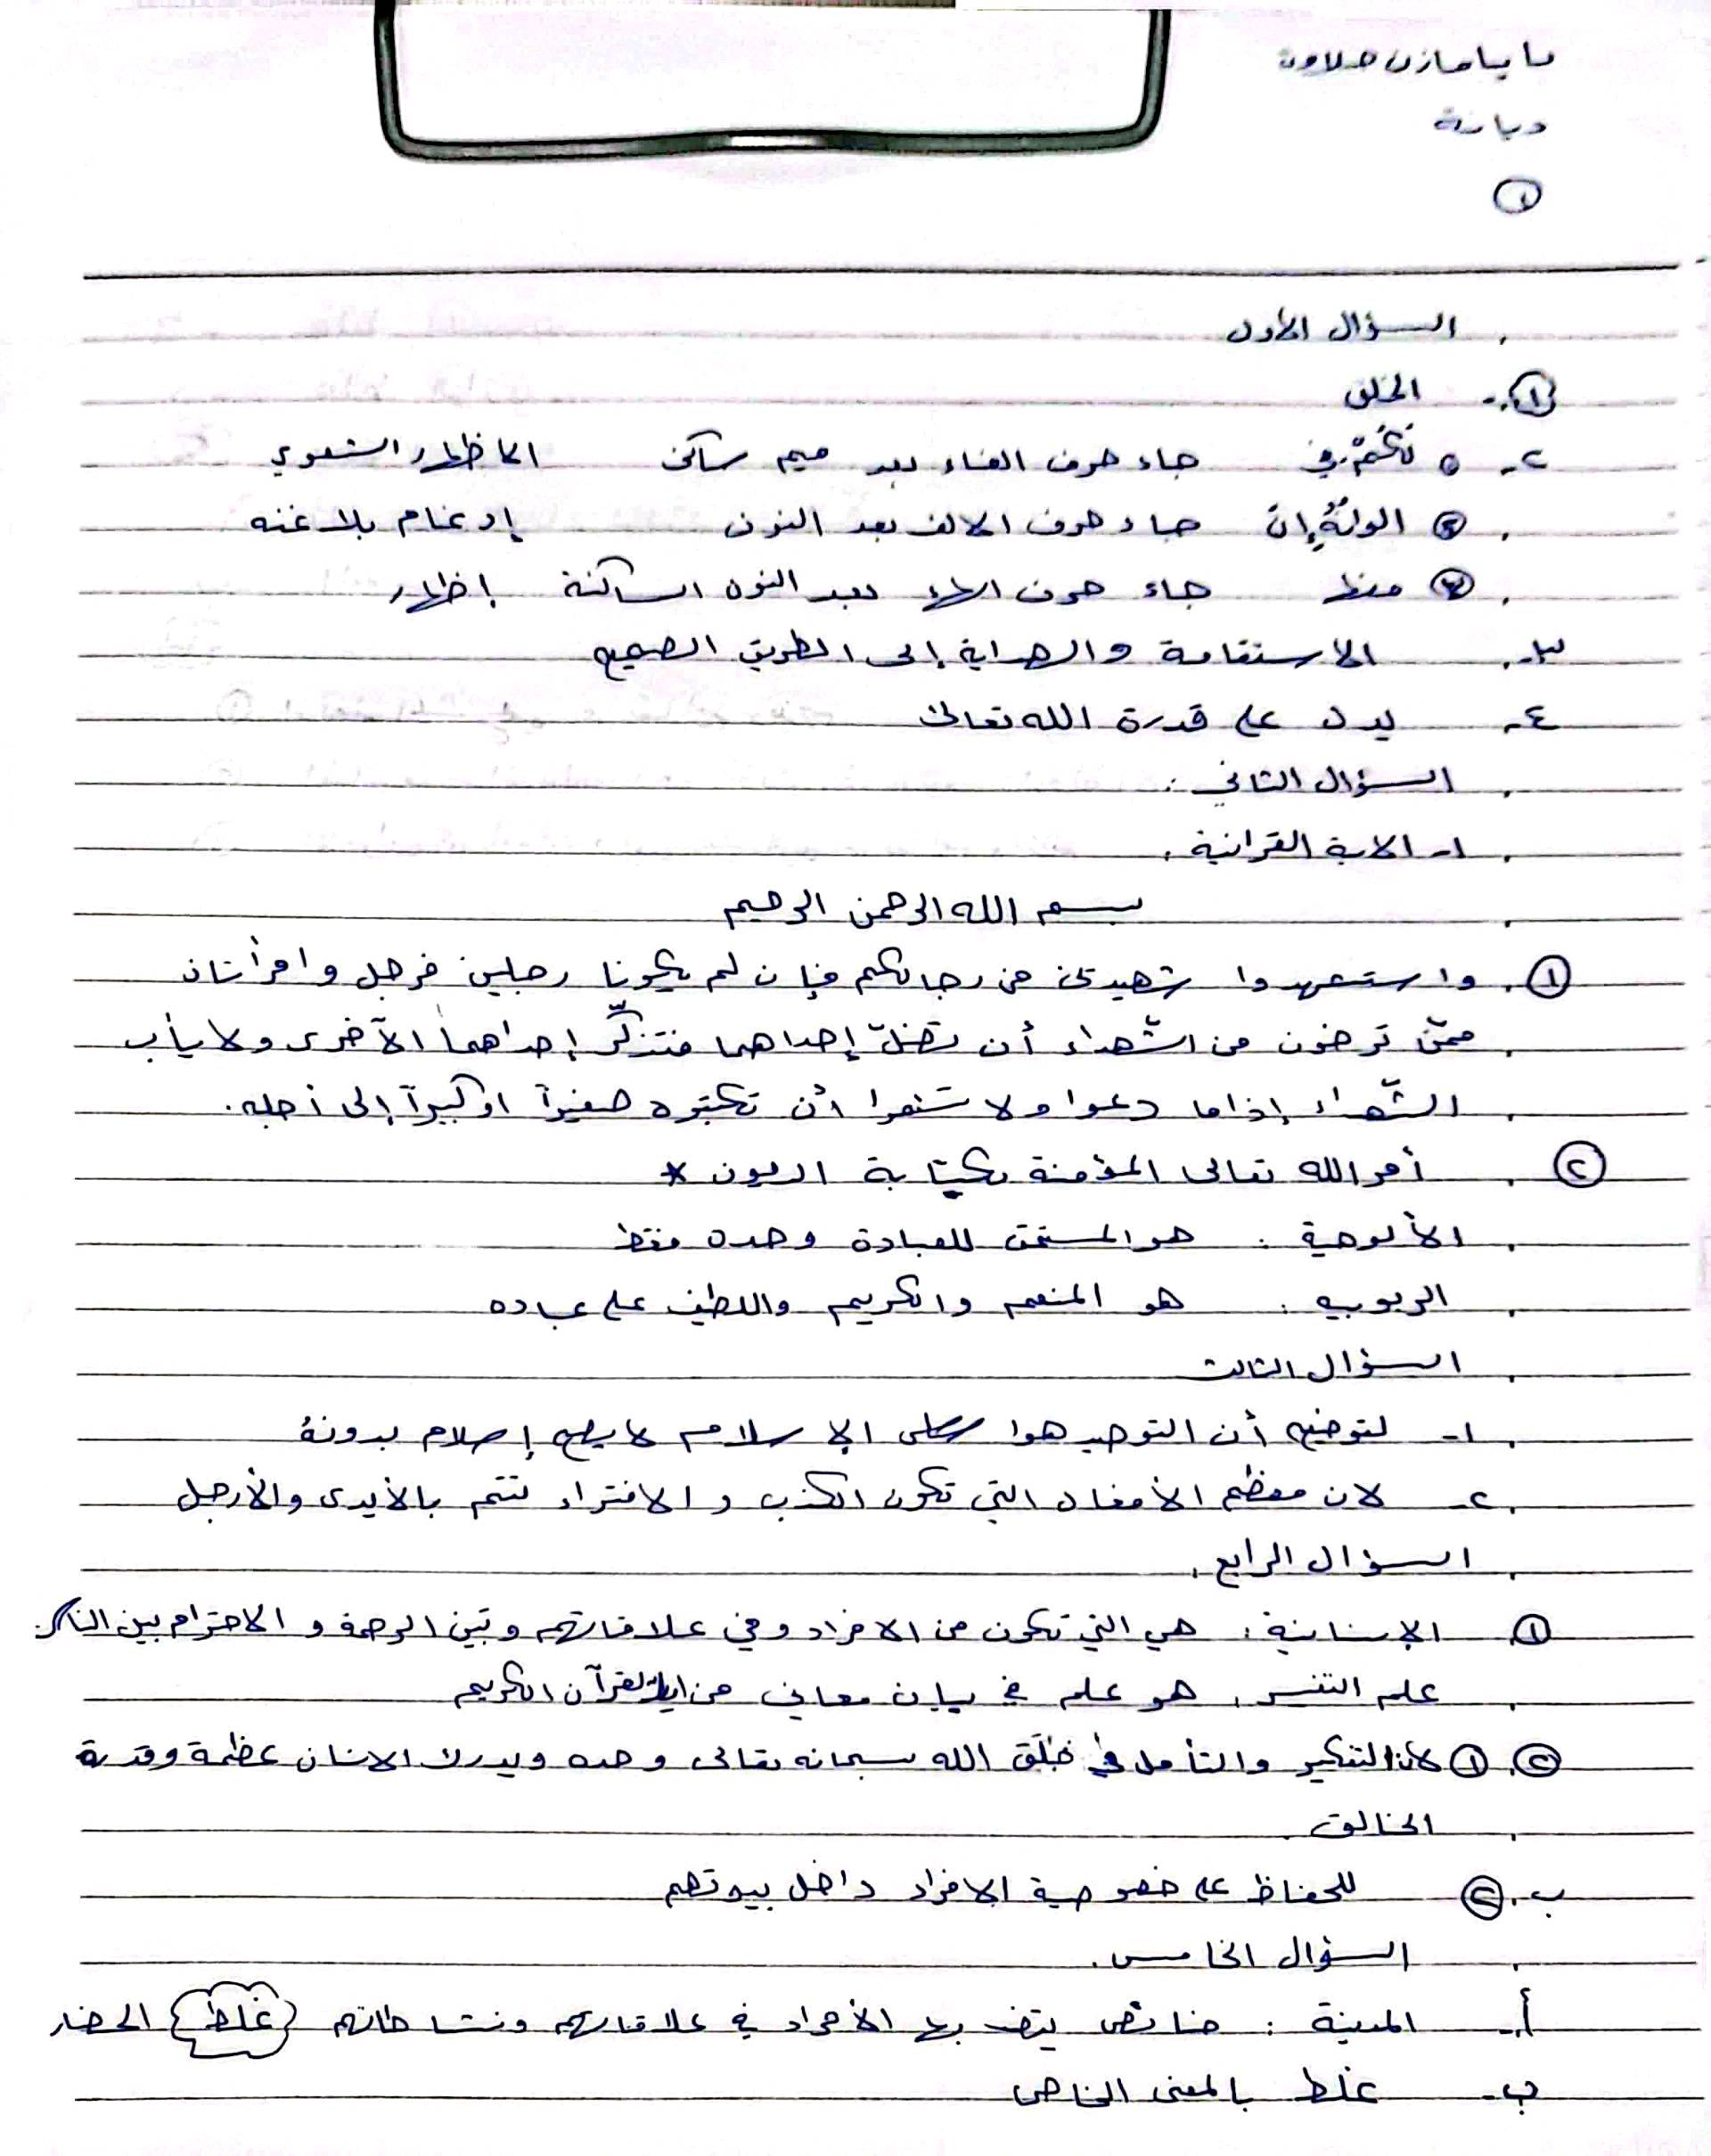 مازن حلاوة
ديانة
١
السؤال الأول
١- الخلق
٢- ١ جاء حرف الفاء بعد ميم ساكن الاظهار الشفوي
٢ جاء حرف الالف بعد النون إدغام بلا غنه
٣ جاء حرف الهاء بعد النون الساكنة إظهار
٣- الاستقامة والهداية إلى الطريق الصحيح
٤- يدل على قدرة الله تعالى
السؤال الثاني :
١- الاية القرانية :
بسم الله الرحمن الرحيم
١ واستهدوا شهيدين من رجالكم فإن لم يكونا رجلين فرجل وامرأتان
ممّن ترضون من الشهداء أن تضلّ إحداهما فتذكّر إحداهما الآخرى ولا يأب
الشّهداء إذا ما دعوا ولا تسئموا أن تكتبوه صغيراً او كبيراً إلى أجله .
٢ أمر الله تعالى المؤمنة بكتابة الديون *
الألوهية : هو المستحق للعبادة وحده فقط
الربوبيه : هو المنعم والكريم واللطيف على عباده
السؤال الثالث
١- لتوضيح أن التوحيد هو الإسلام لا يصح إسلام بدونه
٢- لان معظم الأفعال التي تكون الكذب والافتراء تتم بالأيدي والأرجل
السؤال الرابع :
١ الإنسانية : هي التي تكون من الافراد وفي علاقاتهم وتبين الرحمة والاحترام بين الناس.
علم التفسير : هو علم في بيان معاني من القرآن الكريم
٢ ١ لأن التفكير والتأمل في خلق الله سبحانه تعالى وحده ويدرك الانسان عظمة وقدرة
الخالق
ب. ٢ للحفاظ على خصوصية الافراد داخل بيوتهم
السؤال الخامس .
أ- المدنية : خصائص يتصف بها الأفراد في علاقاتهم ونشاطاتهم (غلط) الحضار
ب- غلط بالمعنى الخاص